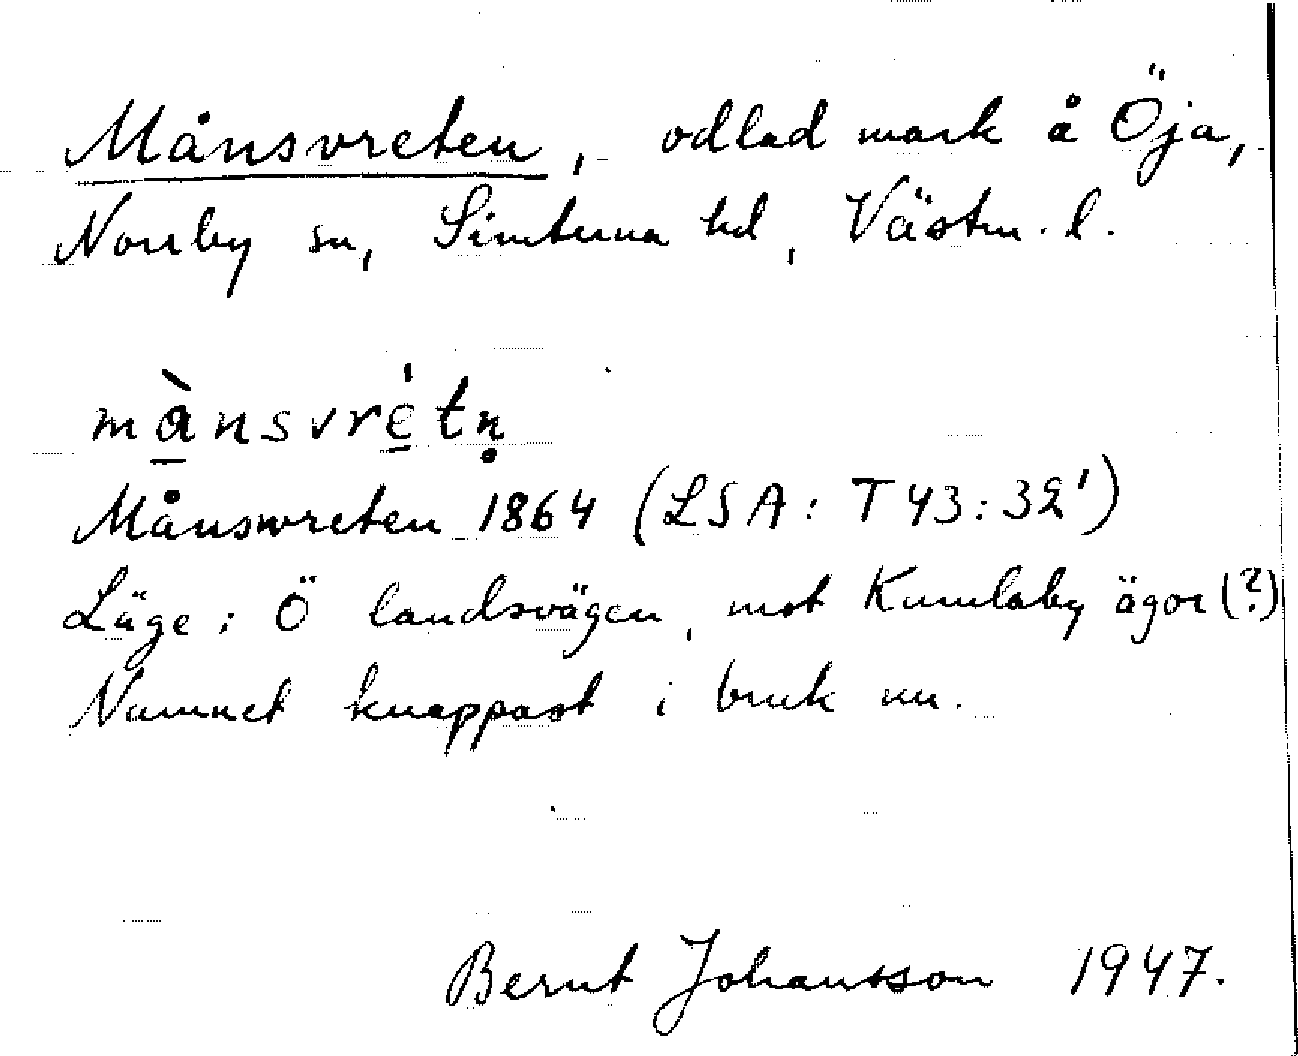 Månsvreten, odlad mark å Öja,
Norrby sn, Simtuna hd, Västm. l.
mànsvrétn̥
Månswreten 1864 (LSA: T43:32')
Läge: Ö landsvägen, mot Kumlaby ägor (?)
Namnet knappast i bruk nu.
Bernt Johansson 1947.